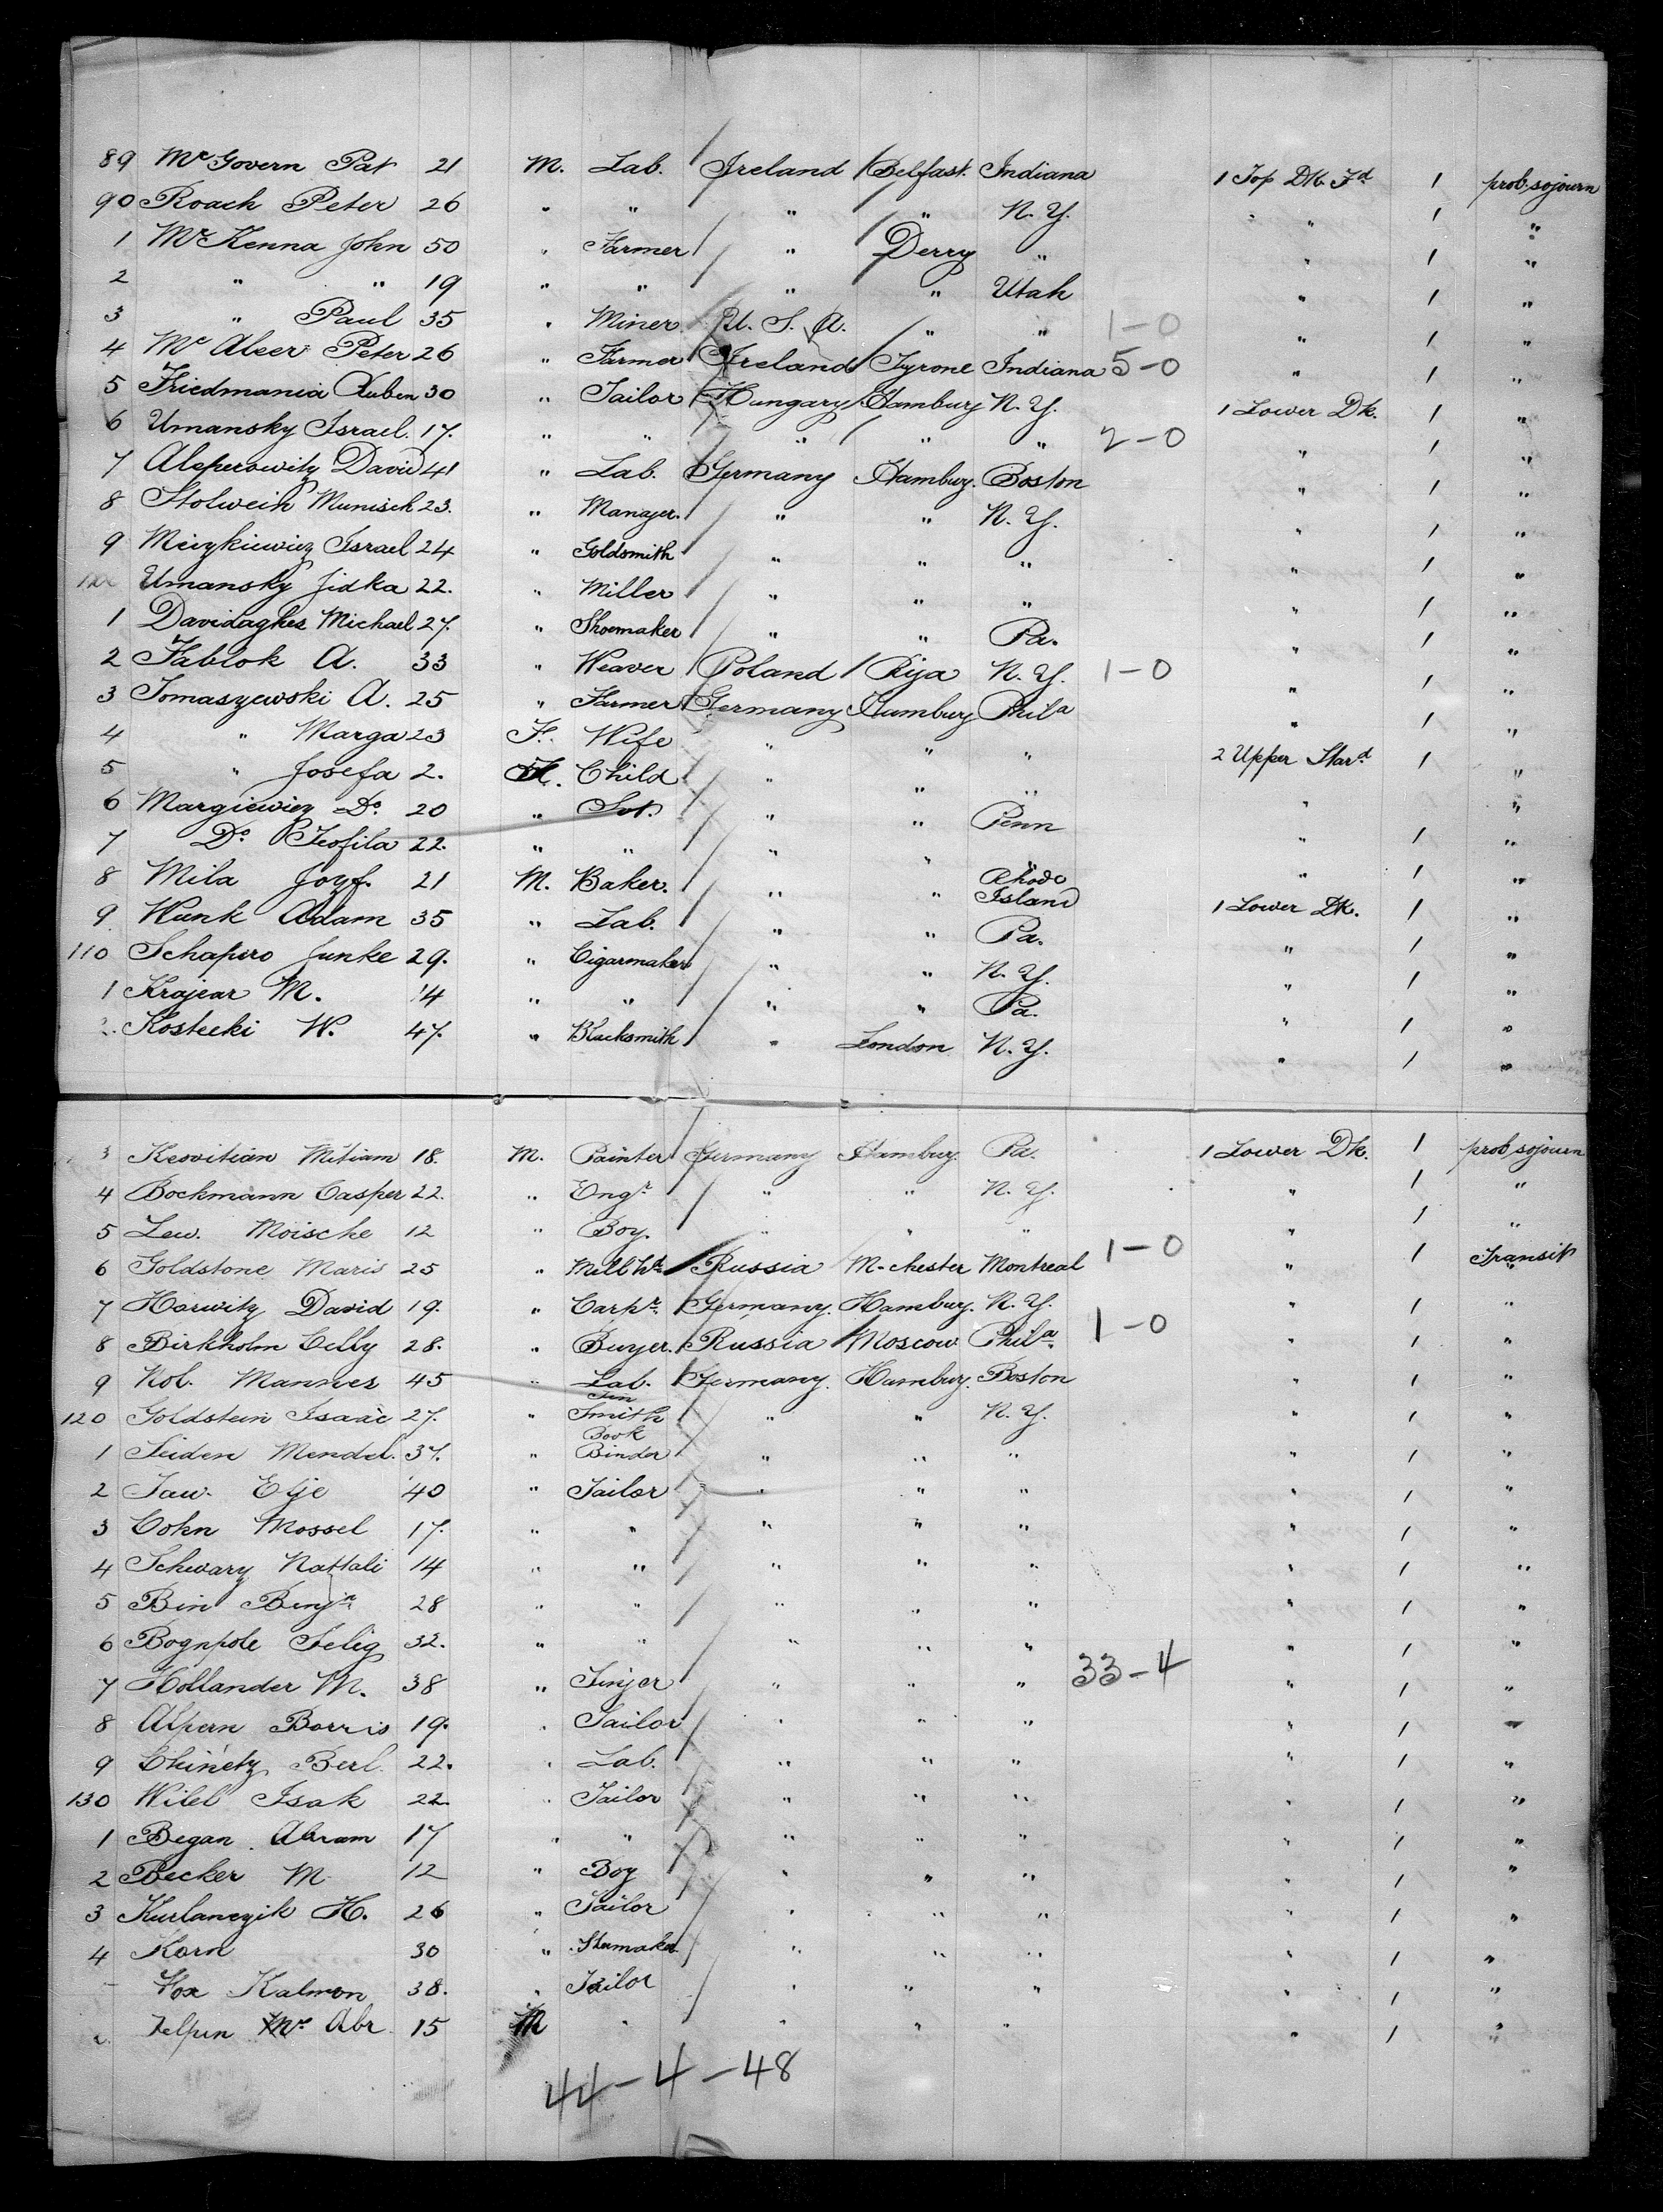 89 McGovern Pat 21 M. Lab. Ireland Belfast. Indiana 1 Top Dk. Fd 1 prob, sojourn
90 Roach Peter 26 " " " " N. Y. " " 1 "
1 McKenna John 50 " Farmer " Derry " " 1 "
2 " " 19 " " " " Utah " 1 "
3 " Paul 35 " Miner U. S. A. " " 1-0 " 1 "
4 McAleer Peter 26 " Farmer Ireland Tyrone Indiana 5-0 " 1 "
5 Friedmania Ruben 30 " Tailor Hungary Hamburg N. Y. 1 Lower Dk. 1 "
6 Umansky Israel. 17. " " " " " 2-0 " 1 "
7 Alsperowitz David 41 " Lab. Germany Hamburg. Boston " 1 "
8 Stolwein Munisch 23. " Manager. " " N. Y. " 1 "
9 Israel 24 " Goldsmith " " " " 1 "
Umansky Jidka 22. " Miller " " " " 1 "
1 Michael 27. " Shoemaker " " Pa. " 1 "
2 Jablok A. 33 " Weaver Poland Riga N. Y. 1-0 " 1 "
3 Tomaszewski A. 25 " Farmer Germany Hamburg Phila " 1 "
4 " Marga 23 F. Wife " " " 2 Upper Stard 1 "
5 " Josefa 2. Child " " " " "
6 Margiewiez Do. 20 " Svt. " " Penn " 1 "
7 Do Teofila 22. " " " " " " 1 "
8 Mila Jozf. 21 M. Baker. " " Rhode Island 1 Lower Dk. 1 "
9 Wunk Adam 35 " Lab. " " Pa. " 1 "
110 Schapiro Junke 29. " Cigarmaker " " N. Y. " 1 "
1 Krajear M. 14 " " " " Pa. " 1 "
2. Kostecki W. 47. " Blacksmith " London N. Y. " 1 "
3 Mitiam 18. M. Painter Germany Hamburg. Pa. 1 Lower Dk. 1 prob, sojourn
4 Bockmann Casper 22. " Engr. " " N. Y. " 1 "
5 Lew. Moische 12 " Boy. " " " " 1 "
6 Goldstone Maris 25 " Mill Hd. Russia M-chester Montreal 1-0 " 1 Transit
7 Horwitz David 19. " Carpr. Germany. Hamburg. N. Y. " 1 "
8 Birkholm Celly 28. " Buyer. Russia Moscow Phila. 1-0 " 1 "
9 Kol. Mannes 45 " Lab. Germany. Hamburg. Boston " 1 "
120 Goldstein Isaac 27. " Tin Smith " " N. Y. " 1 "
1 Seiden Mendel. 37. " Book Binder " " " " 1 "
2 Jaw. Elje 40 " Tailor " " " " 1 "
3 Cohn Mossel 17. " " " " " " 1 "
4 Schwarz Nattali 14 " " " " " " 1 "
5 Bin Benjn 28 " " " " " " 1 "
6 Bognpole Selig 32. " " " " " " 1 "
7 Hollander M. 38 " Singer " " " 33-4 " 1 "
8 Alpern Borris 19. " Tailor " " " " 1 "
9 Berl. 22. " Lab. " " " " 1 "
130 Wilel Isak 22. " Tailor " " " " 1 "
1 Began. Abram 17 " " " " " " 1 "
2 Becker M. 12 " Boy " " " " 1 "
3 Kurlanczik H. 26 " Tailor " " " " 1 "
4 Korn 30 " " " " " 1 "
Kalmon 38. " Tailor " " " " 1 "
Abr. 15 M " " " " " 1 "
44-4-48